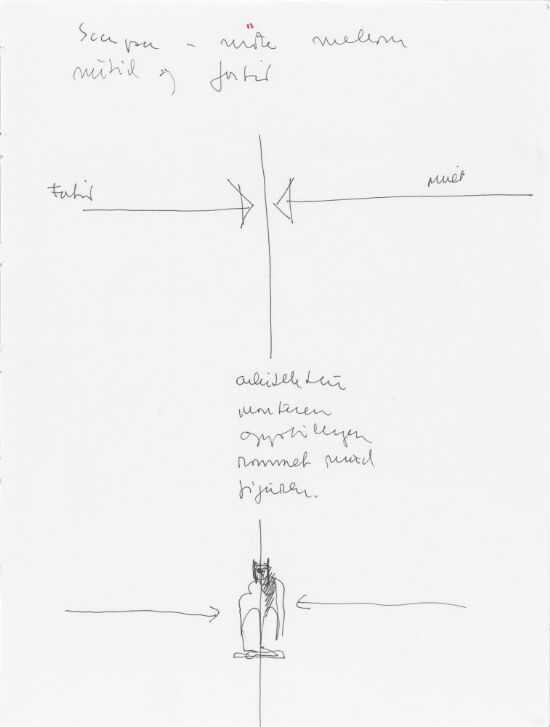 Scarpa - møte mellom
nutid og fortid
Fortid
arkitektur
monteren
oppstillingen
rommet med
figuren.